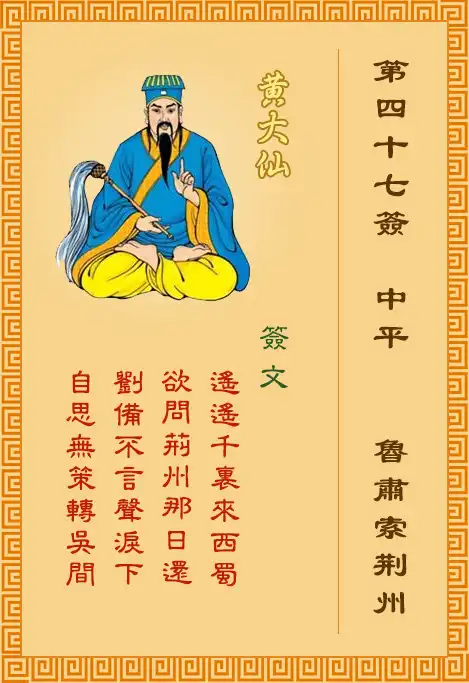 第四十七簽 中平 魯肅索荊州
黃大仙
簽文
遙遙千裏來西蜀
欲問荊州那日還
劉備不言聲淚下
自思無策轉吳間